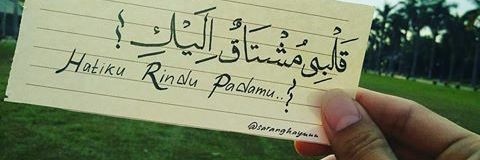 قَلْبِى مُشْتَاقٌ اِلَيْكِ ؟
Hatiku Rindu Padamu..?
@saranghayuuu